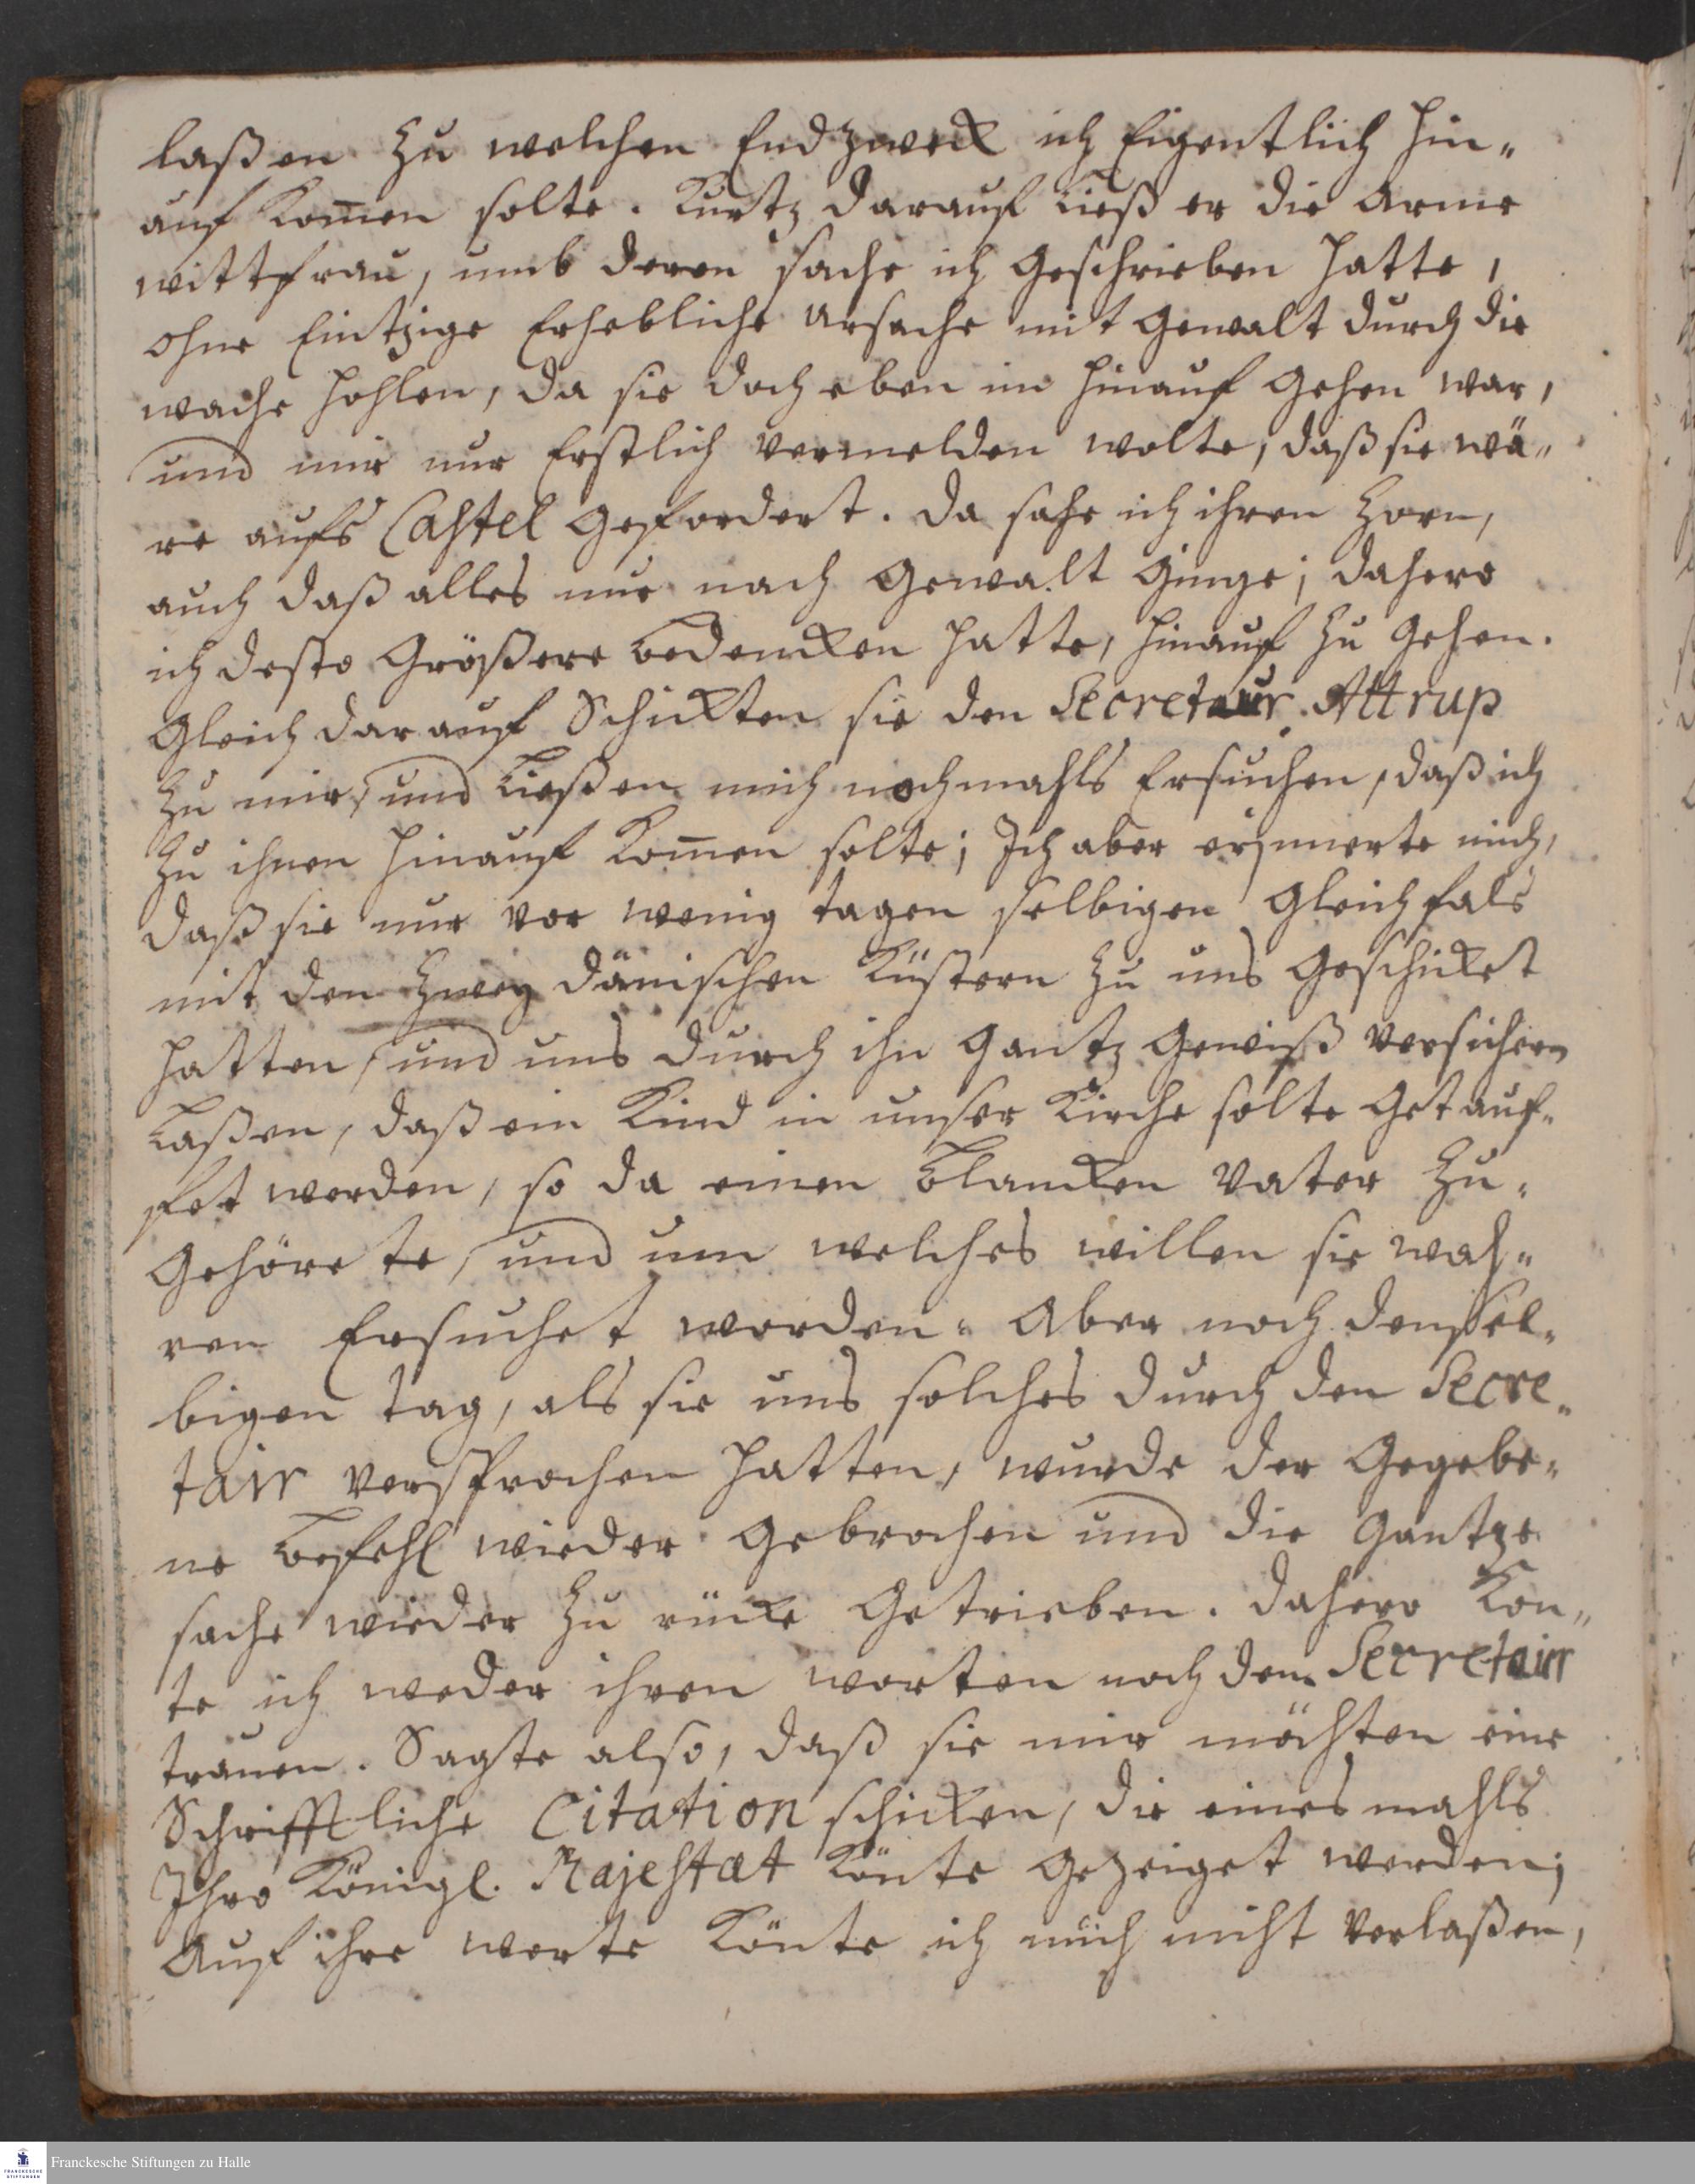 laßen zu welchen Endzweck ich Eigentlich hin„
auf kom̄en solte. Kurtz darauf ließ er die Arme
wittfrau, umb deren sache ich geschrieben hatte,
ohne Eintzige Erhebliche ursache mit gewalt durch die
wache hohlen, da sie doch eben im hinauf gehen war,
und mir nur Erstlich vermelden wolte, daß sie wä„
re aufs Castel gefordert. da sahe ich ihren Zorn,
auch daß alles nur nach gewalt ginge; dahero
ich desto größere bedencken hatte, hinauf zu gehen.
gleich darauf Schickten sie den Secretair. Attrup
zu mir, und ließen mich nochmahls Ersuchen, daß ich
zu ihnen hinauf kom̄en solte; Ich aber erinnerte mich,
daß sie nur vor wenig tagen selbigen gleichfals
mit den zwey dänischen Küstern zu uns geschicket
hatten, und uns durch ihn gantz gewiß versichern
laßen, daß ein Kind in unser Kirche solte getauf„
fet werden, so da einen blancken vater zu„
gehörete, und um welches willen sie wah„
ren Ersuchet worden. Aber noch denssel„
bigen tag, als sie uns solches durch den Secre„
tair versprochen hatten, wurde der gegebe„
ne befehl wieder gebrochen und die gantze
sache wieder zu rücke getrieben. dahero kon„
te ich weder ihren worten noch dem Secretair
trauen. Sagte also, daß sie mir möchten eine
Schrifftliche Citation schicken, die eines mahls
Ihro Königl. Majestæt könte gezeiget werden;
Auf ihre worte könte ich mich nicht verlaßen,
Franckesche Stiftungen zu Halle
FRANCKESCHE
STIFTUNGEN